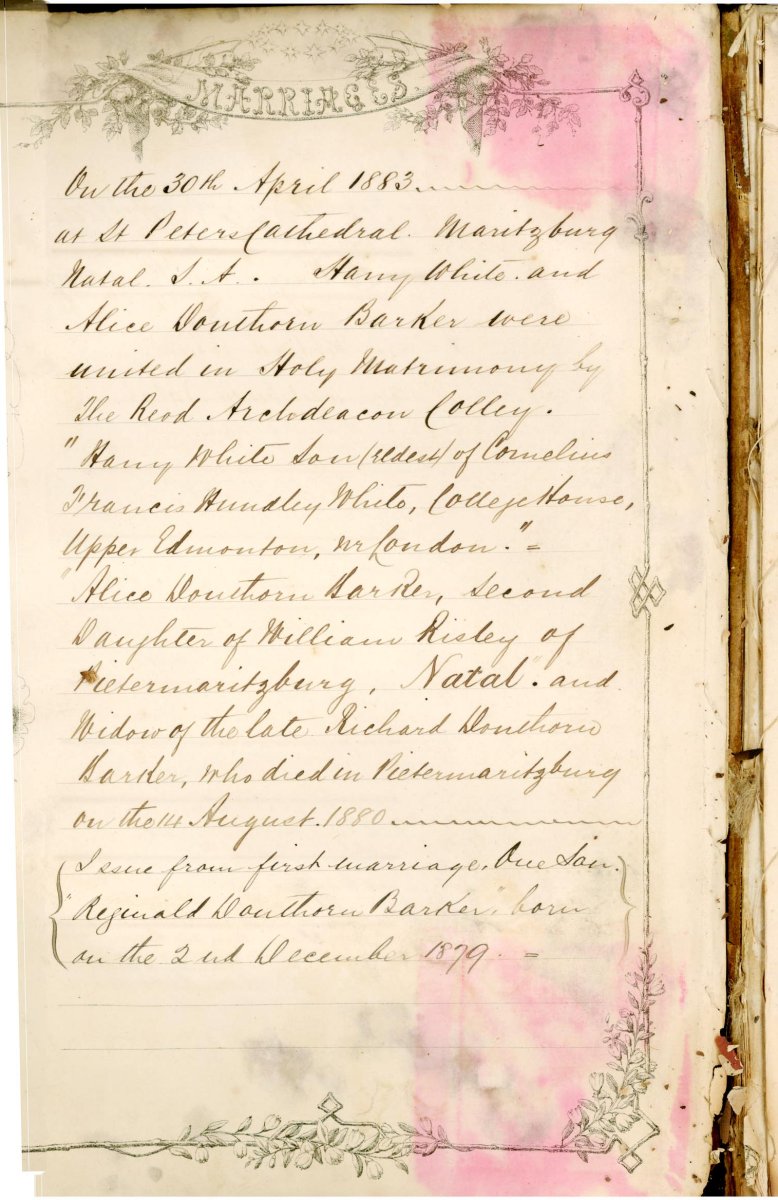 MARRIAGES.
On the 30th April 1883
at St Peters Cathedral. Maritzburg
Natal. S. A. . Harry White. and
Alice Donthorn Barker were
united in Holy Matrimony by
The Revd Archdeacon Colley.
"Harry White Son (eldest) of Cornelius
Francis Hundley White, College House,
Upper Edmonton, nr London." =
"Alice Donthorn Barker, second
Daughter of William Risley of
Pietermaritzburg, Natal". and
Widow of the late Richard Donthorn
Barker, who died in Pietermaritzburg
on the 14 August. 1880
Issue from first marriage. One Son.
"Reginald Donthorn Barker", born
on the 2nd December 1879. =